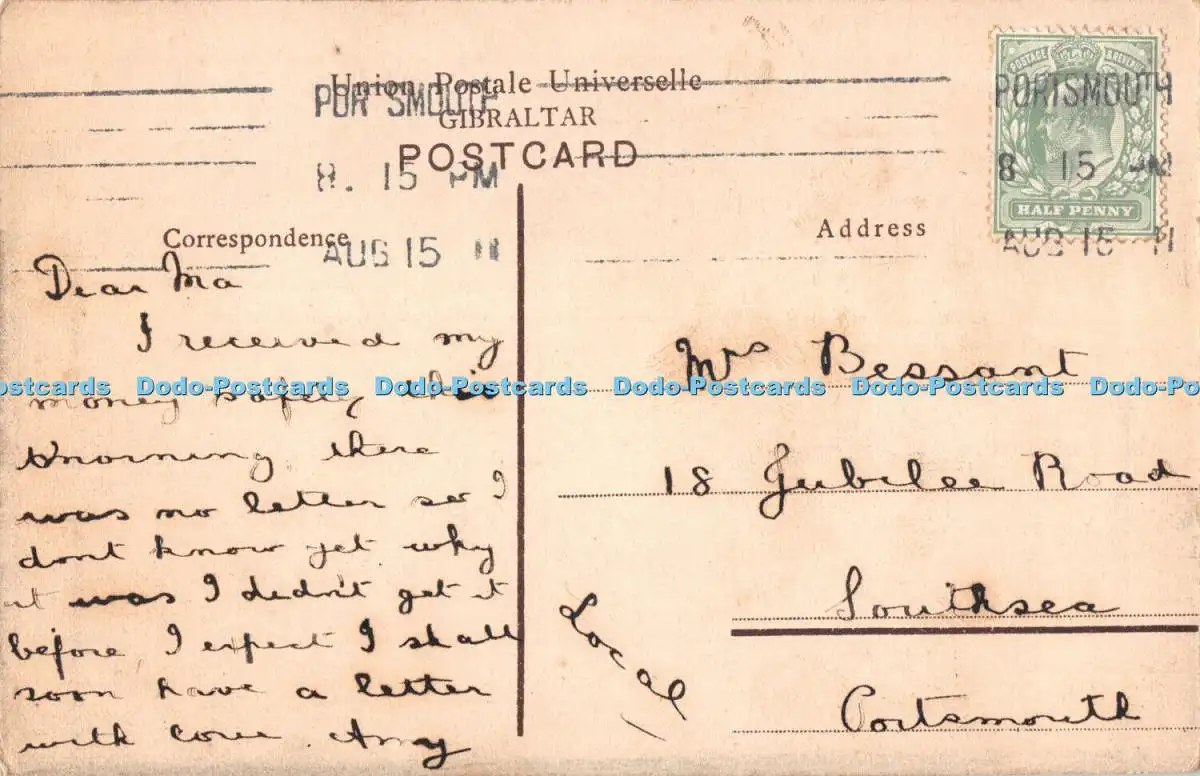 Union Postale Universelle
GIBRALTAR
POSTCARD
PORTSMOUTH
8. 15 PM
AUG 15 11
PORTSMOUTH
8 15 PM
AUG 15 11
POSTAGE & REVENUE
HALF PENNY
Correspondence
Address
Dear Ma
I received my
money safely this
morning there
was no letter so I
dont know yet why
it was I dedn't get it
before I expect I shall
soon have a letter
with love Amy
Mrs Bessant
18 Jubilee Road
Southsea
Portsmouth
Local
Postcards Dodo-Postcards Dodo-Postcards Dodo-Postcards Dodo-Postcards Dodo-Po